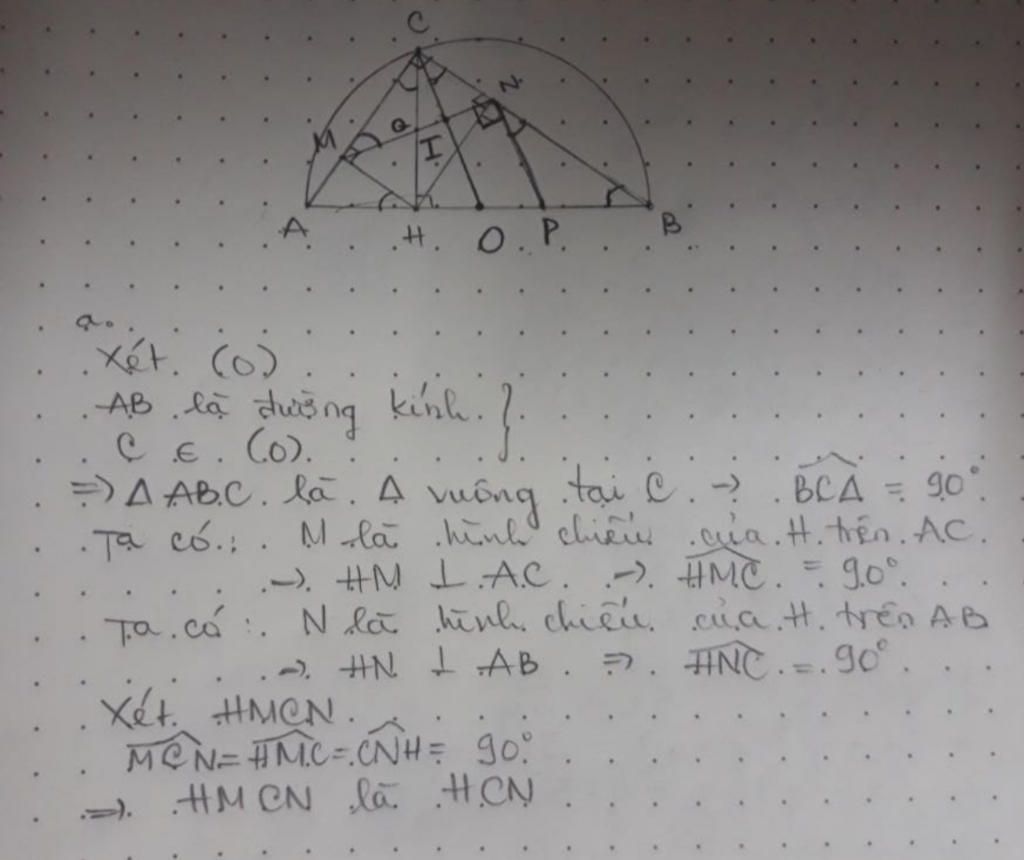 C
N
M Q
I
A H O P B
a.
Xét (O)
AB là đường kính
C ∈ (O)
=> Δ ABC là Δ vuông tại C → BCA = 90°
Ta có: M là hình chiếu của H trên AC
→ HM ⊥ AC → HMC = 90°
Ta có: N là hình chiếu của H trên AB
→ HN ⊥ AB => HNC = 90°
Xét HMCN
MCN = HMC = CNH = 90°
=> HMCN là HCN